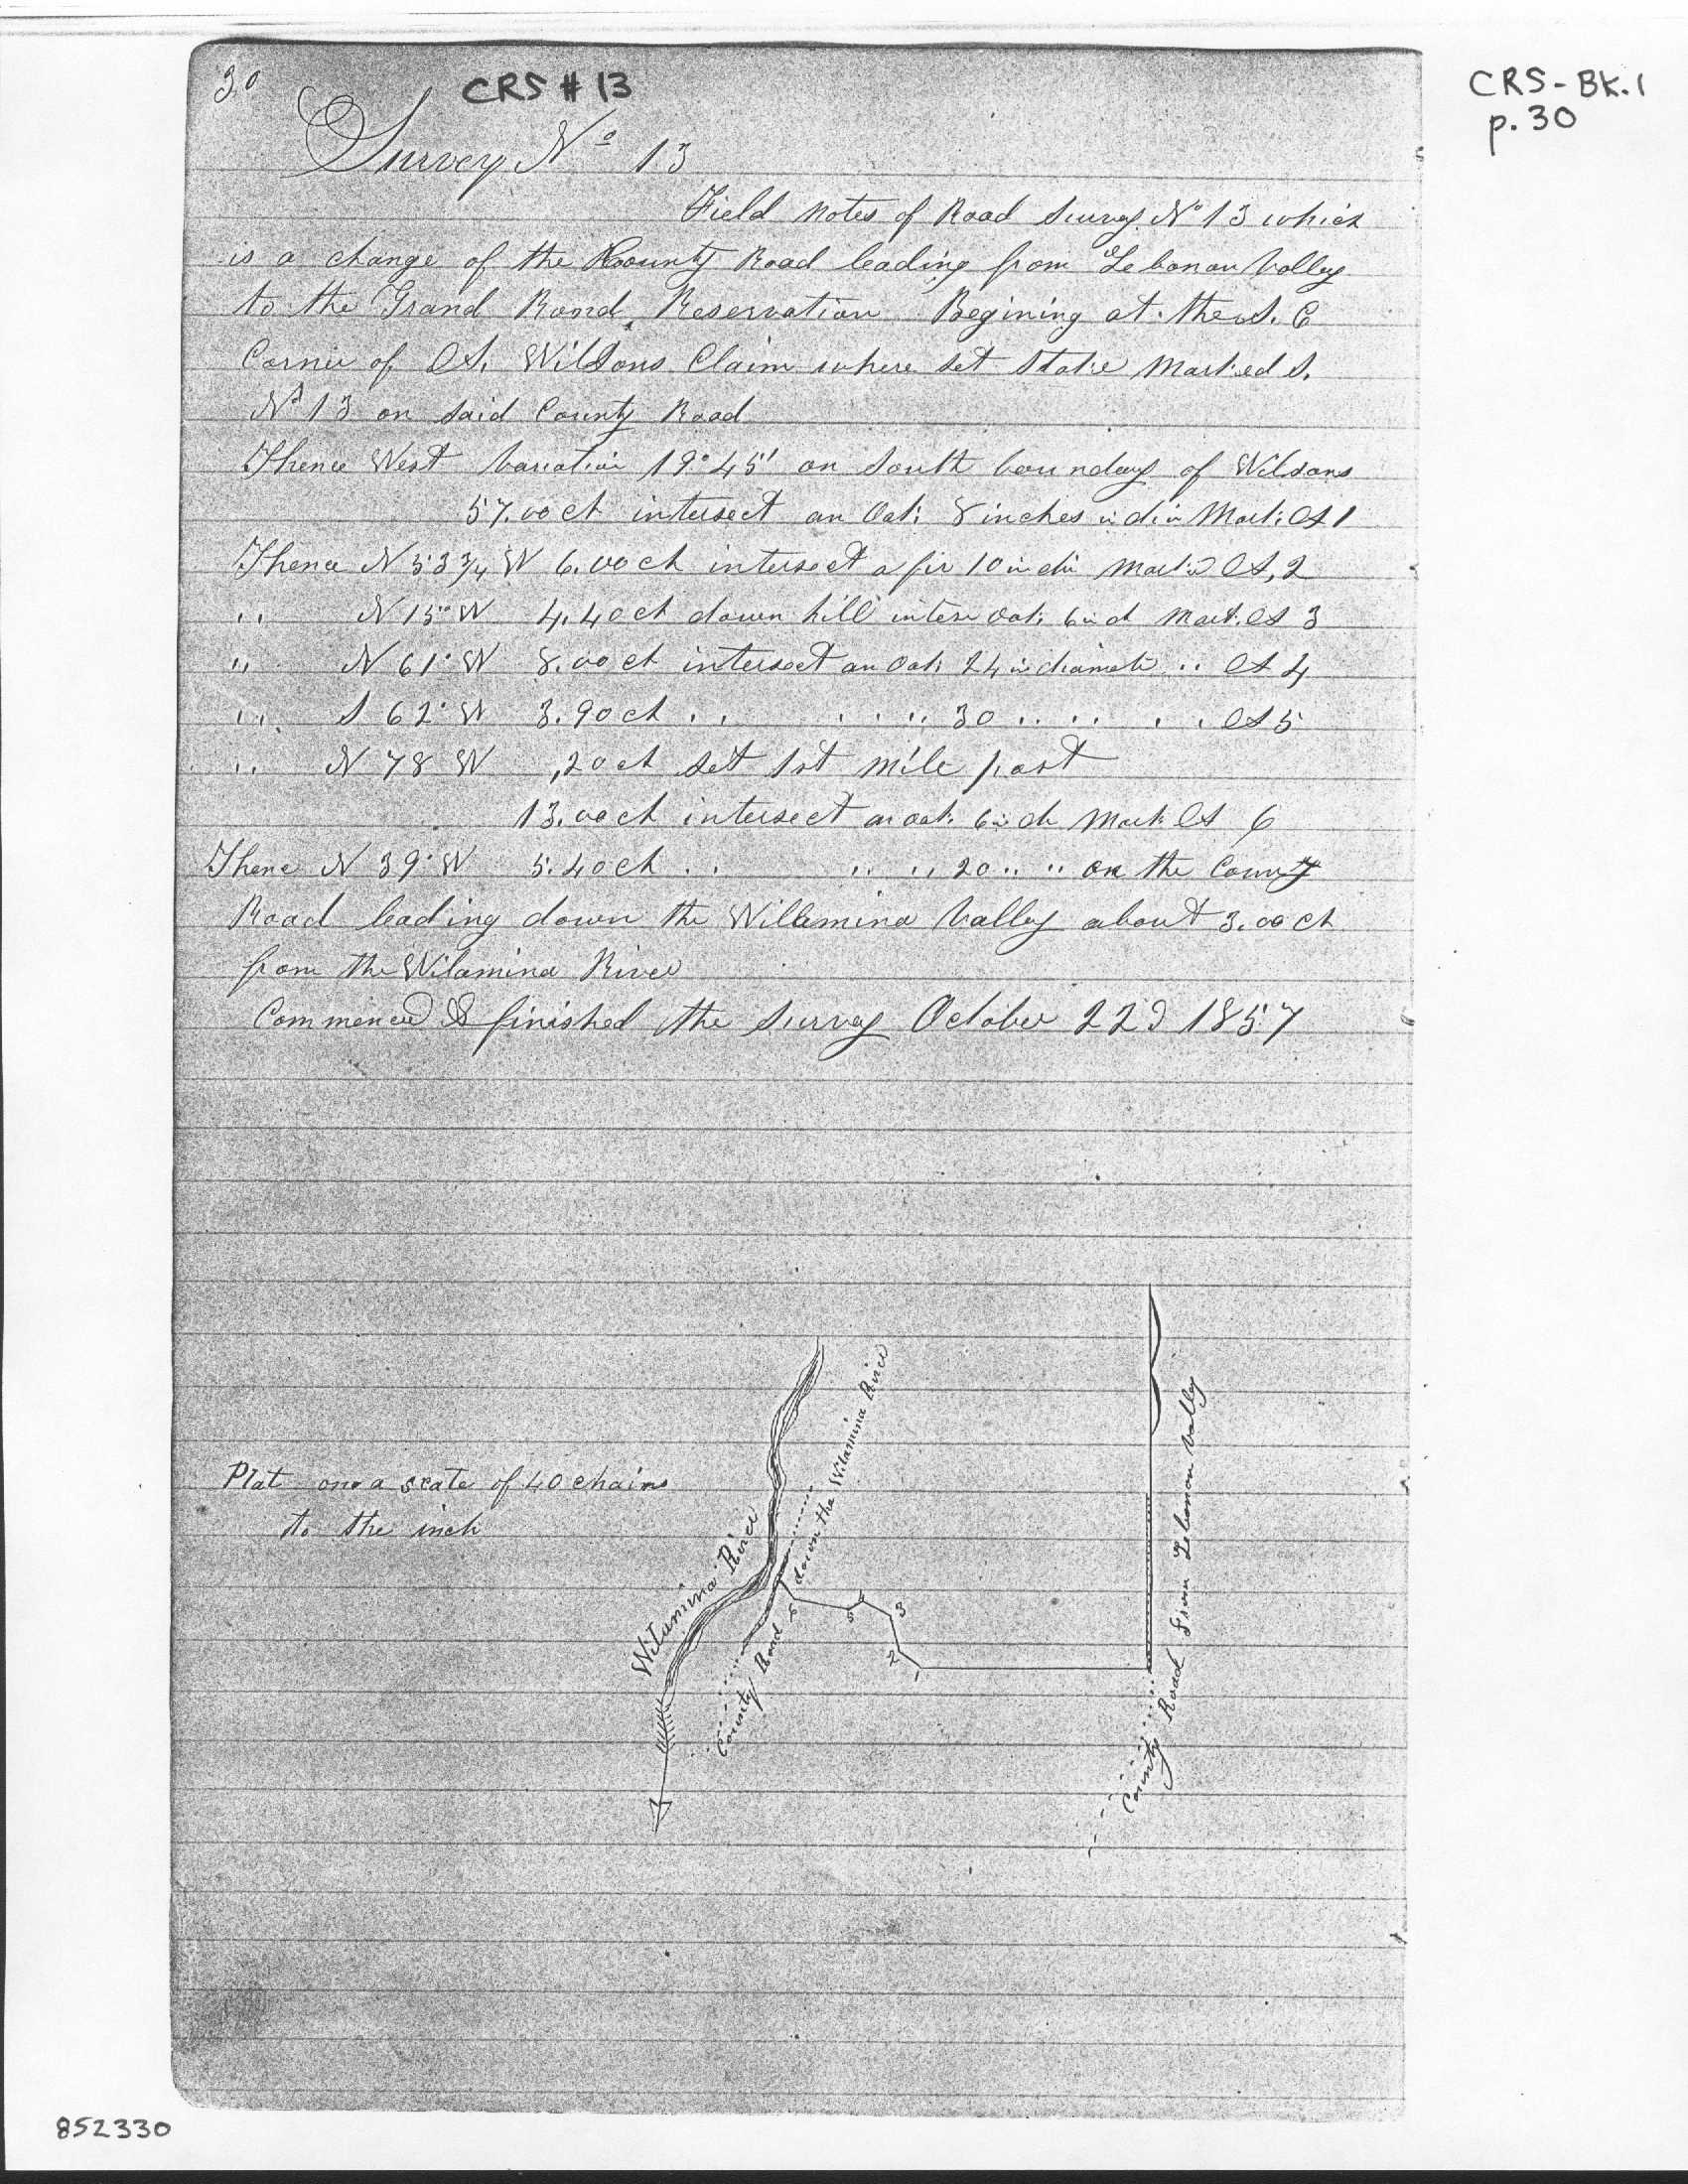 30
CRS # 13
CRS - BK. 1
p. 30
Survey No 13
Field notes of Road Survey No 13 which
is a change of the County Road leading from Lebanon Valley
to the Grand Rond Reservation Begining at the S. E
Corner of A. Wilsons Claim where set Stake Marked S.
No 13 on said County Road
Thence West Variation 19° 45' on South boundary of Wilsons
57.00 ch intersect an Oak 8 inches in di Mark A 1
Thence N 53 3/4 W 6.00 ch intersect a fir 10 in di Mark A, 2
" N 15° W 4.40 ch down hill inters Oak 6 in d Mark. A 3
" N 61° W 8.00 ch intersect an Oak 24 in diamet " A 4
" S 62° W 3.90 ch " " " 30 " " " A 5
" N 78 W ,20 ch set 1st Mile post
13.00 ch intersect an oak 6 in di Mark A 6
Thenc N 39° W 5.40 ch " " " 20 " " on the County
Road leading down the Willamina Valley about 3.00 ch
from the Wilamina River
Commenced & finished the Survey October 22d 1857
Plat on a scale of 40 chains
to the inch
Wilamina River
County Road down the Wilamina River
6
5
4
3
2
1
County Road From Lebanon Valley
852330